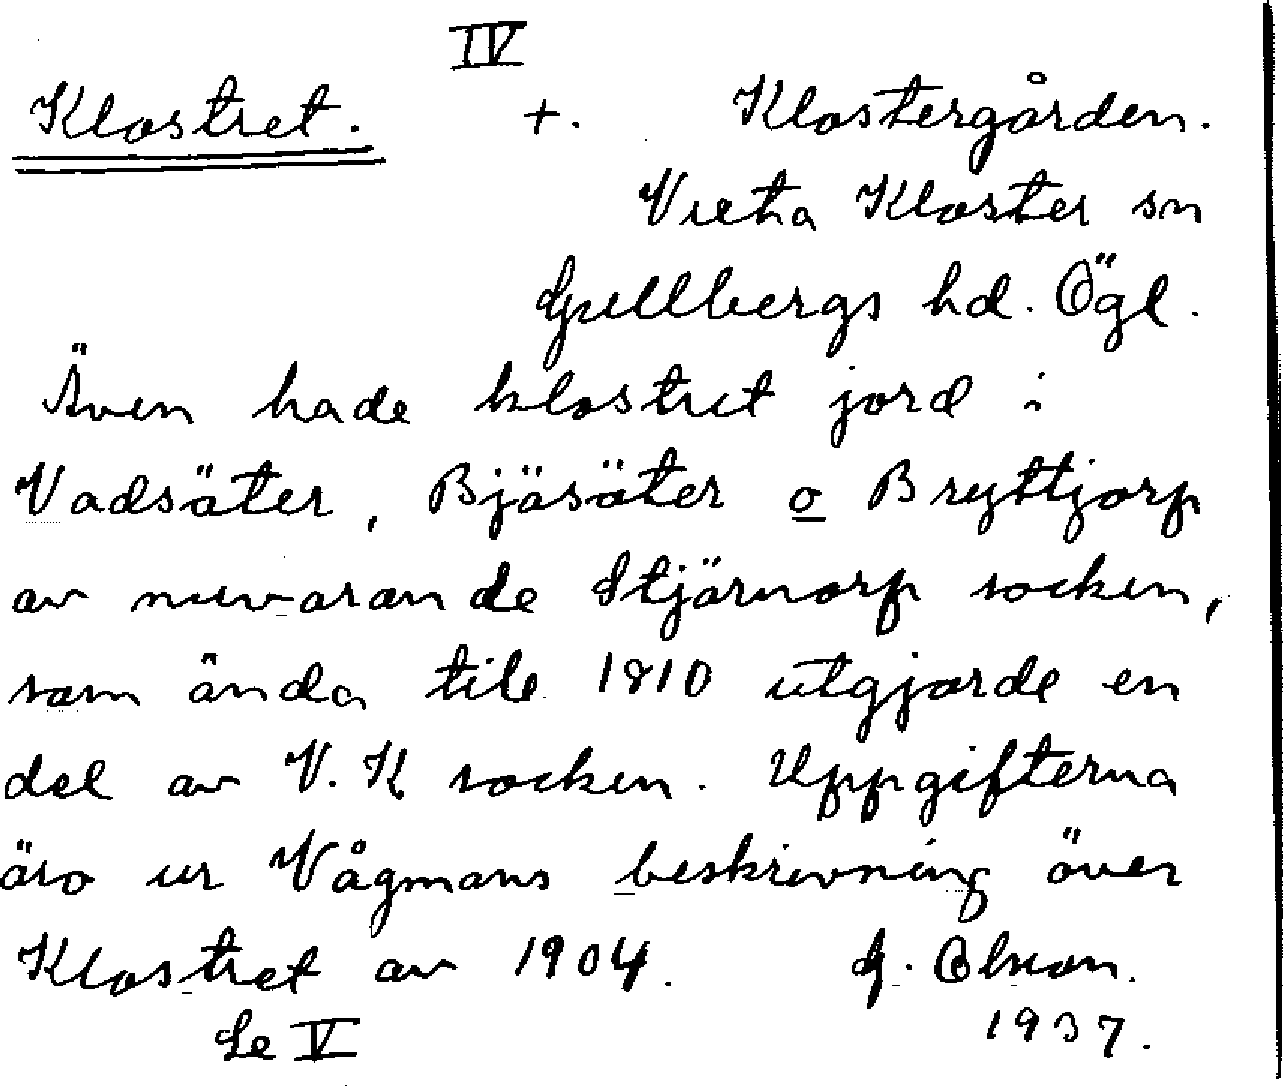 IV
Klostret. +. Klostergården.
Vreta Kloster sn
Gullbergs hd. Ögl.
Även hade klostret jord i
Vadsäter, Bjäsäter o Bryttjorp
av nuvarande Stjärnorp socken,
som ända till 1810 utgjorde en
del av V. K socken. Uppgifterna
äro ur Vågmans beskrivning över
Klostret av 1904. G. Olsson.
Se V 1937.